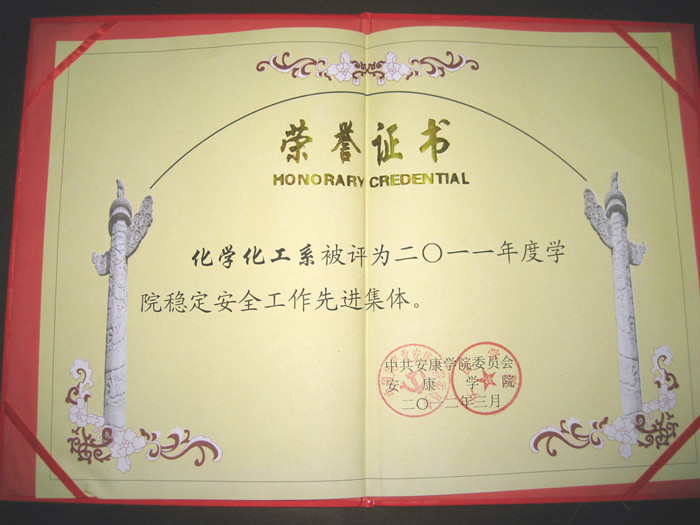 荣誉证书
HONORARY CREDENTIAL
化学化工系被评为二〇一一年度学
院稳定安全工作先进集体。
中共安康学院委员会
安康学院
二〇一二年三月